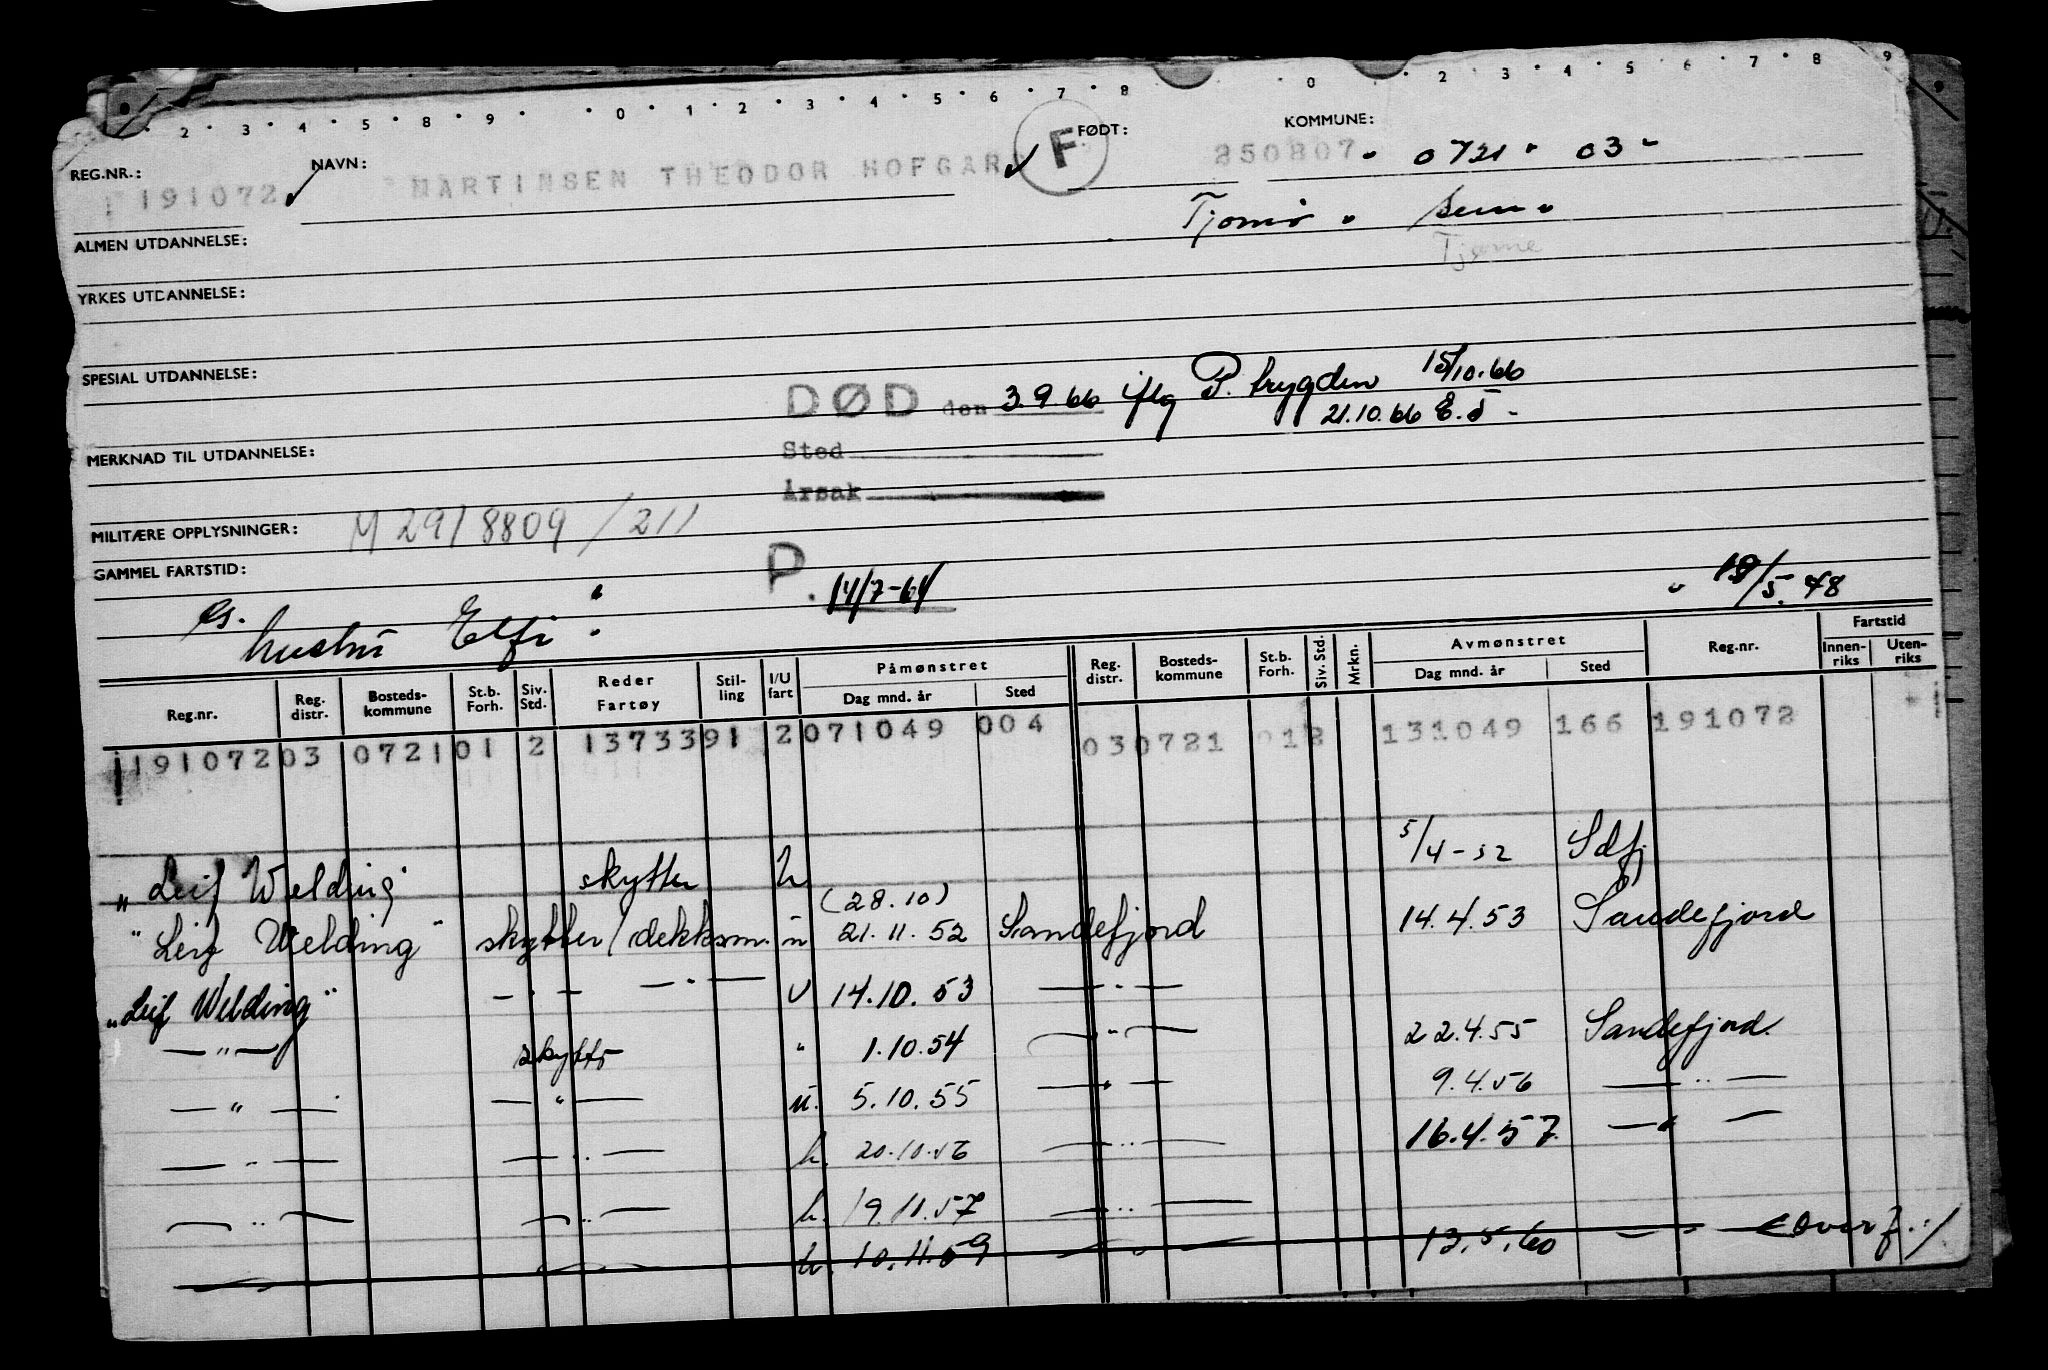 2 3 4 5 8 9 0 1 2 3 4 5 6 7 8 0 2 3 4 5 6 7 8 9
REG.NR.: NAVN: FØDT: KOMMUNE:
191072 MARTINSEN THEODOR HOFGAR F 250807 0721 03
Tjømø Sem
Tjøme
ALMEN UTDANNELSE:
YRKES UTDANNELSE:
SPESIAL UTDANNELSE:
DØD den 3.9.66 iflg P. trygden 15/10.66
21.10.66
Sted
MERKNAD TIL UTDANNELSE:
Årsak
MILITÆRE OPPLYSNINGER: M 291 8809 / 211
GAMMEL FARTSTID:
P. 14/7-64
G. hustru Elfi 18/5.48
Reg.nr. Reg. distr. Bosteds- kommune St.b. Forh. Siv. Std. Reder Fartøy Stil- ling I/U fart Påmønstret Dag mnd. år Sted Reg. distr. Bosteds- kommune St.b. Forh. Siv. Std. Mrkn. Avmønstret Dag mnd. år Sted Reg.nr. Fartstid Innen- riks Uten- riks
191072 03 0721 01 2 13733 91 2 071049 004 03 0721 012 131049 166 191072
"Leif Welding" skytter u 5/4-52 Sdfj
"Leif Welding" skytter/dekksm. u (28.10) 21.11.52 Sandefjord 14.4.53 Sandefjord
"Leif Welding" — " — — " — u 14.10.53 — " —
— " — skytter " 1.10.54 — " — 22.4.55 Sandefjord
— " — — " — u. 5.10.55 — " — 9.4.56 — " —
— " — — " — u. 20.10.56 — " — 16.4.57 — " —
— " — — " — u. 19.11.57 — " —
u. 10.11.59 — " — 13.5.60 — " — Overf. ./.